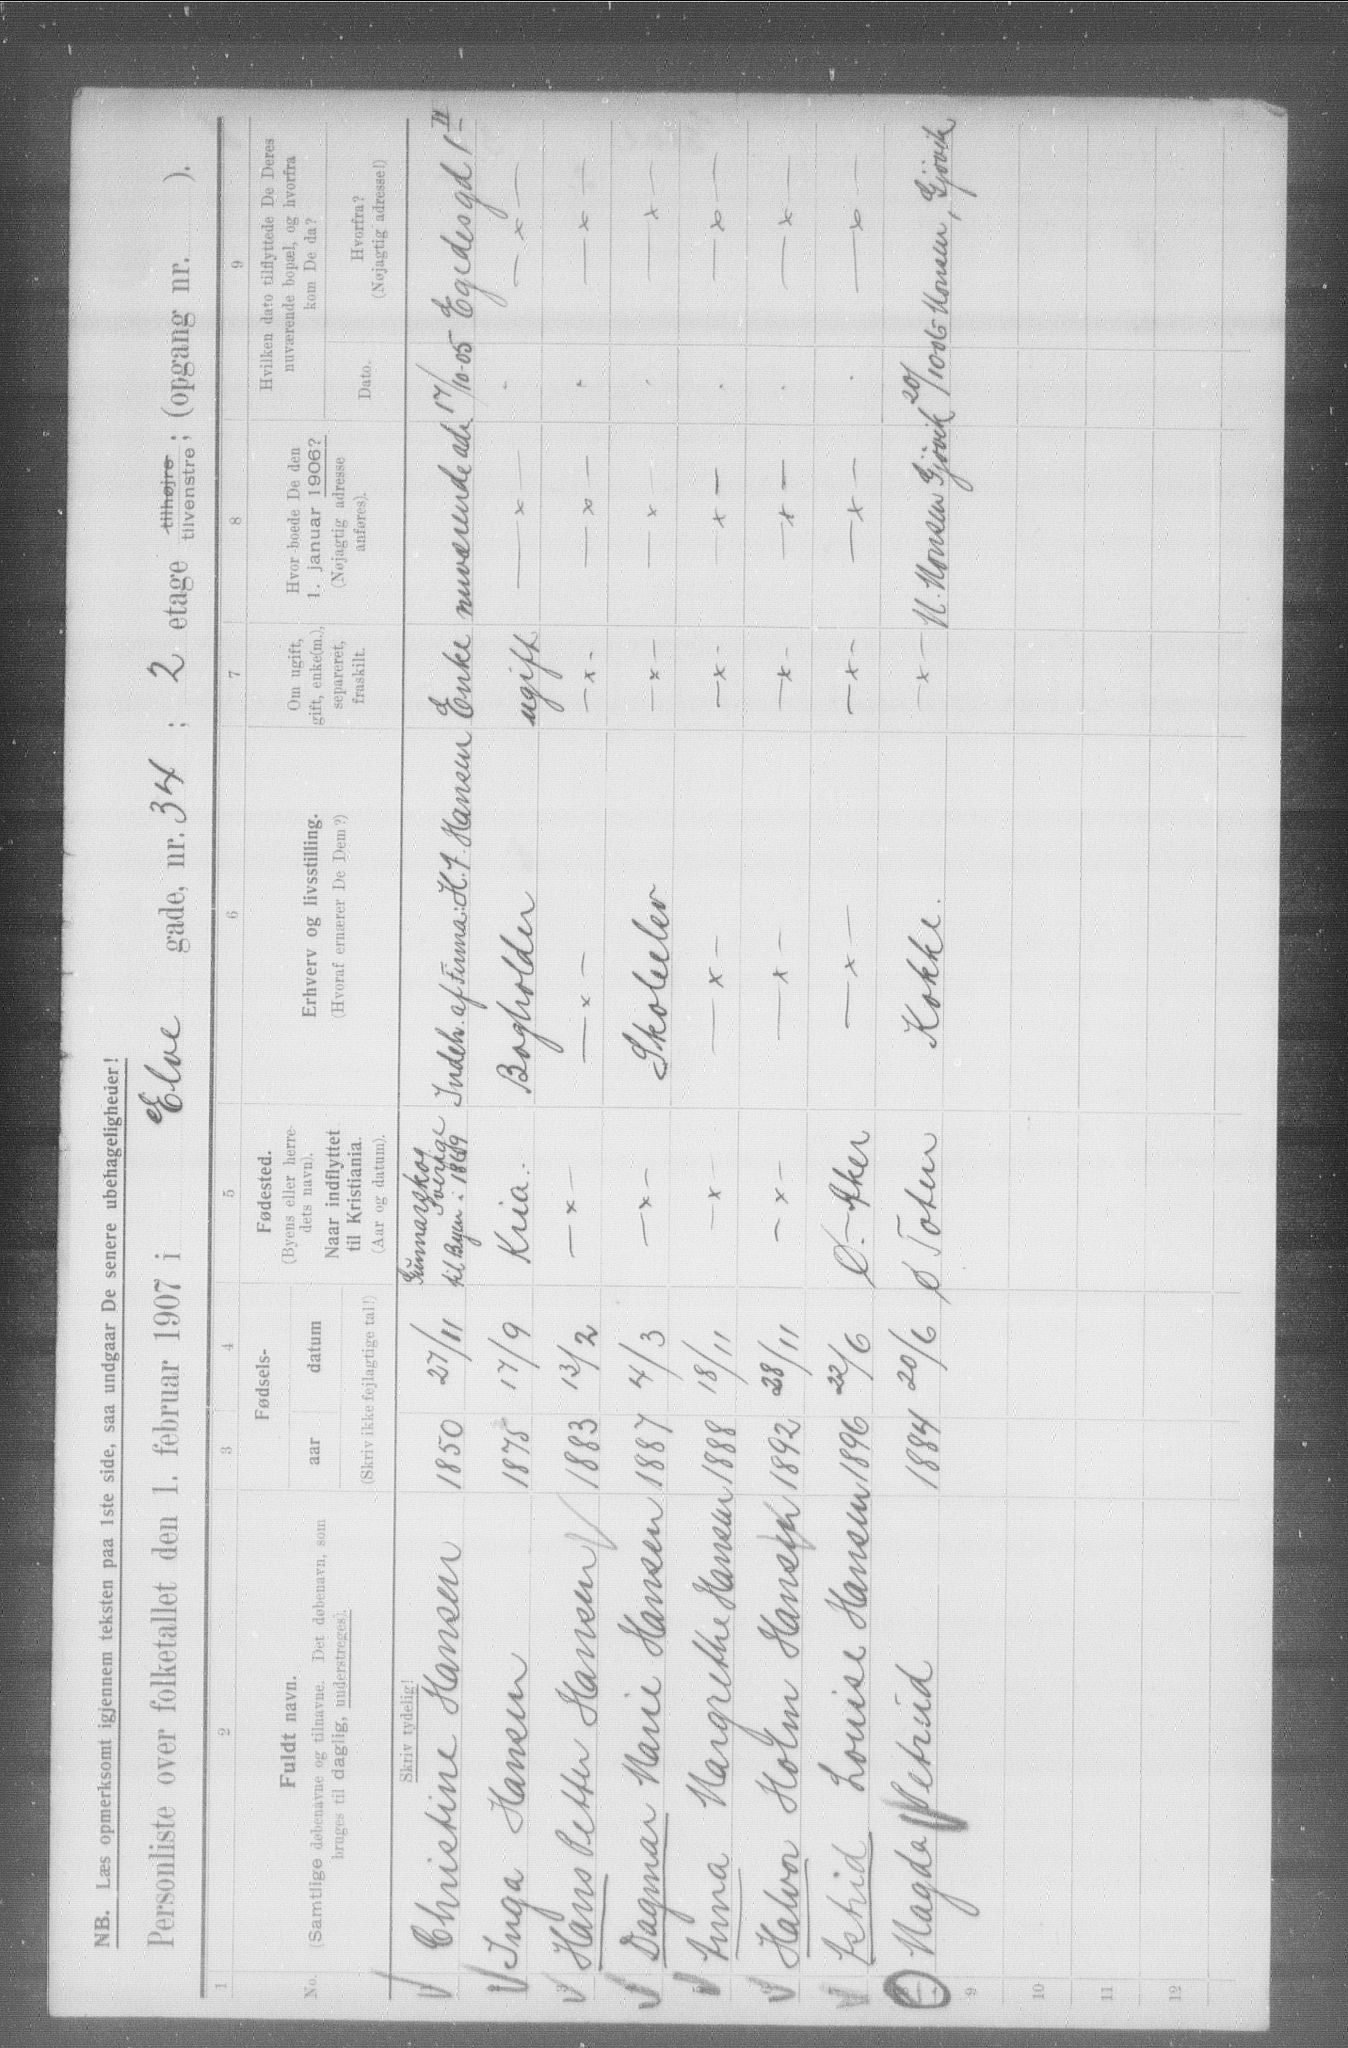 NB. Læs opmerksomt igjennem teksten paa 1ste side, saa undgaar De senere ubehageligheuer!
Personliste over folketallet den 1. februar 1907 i Elve gade, nr. 34 ; 2 etage tilhøjre tilvenstre ; (opgang nr. ).
1 2 3 4 5 6 7 8 9
No.
Fuldt navn.
(Samtlige døbenavne og tilnavne. Det døbenavn, som
bruges til daglig, understreges).
Fødsels-
aar datum
(Skriv ikke fejlagtige tal!)
Fødested.
(Byens eller herre-
dets navn).
Naar indflyttet
til Kristiania.
(Aar og datum).
Erhverv og livsstilling.
(Hvoraf ernærer De Dem?)
Om ugift,
gift, enke(m.),
separeret,
fraskilt.
Hvor boede De den
1. januar 1906?
(Nøjagtig adresse
anføres).
Hvilken dato tilflyttede De Deres
nuværende bopæl, og hvorfra
kom De da?
Dato.
Hvorfra?
(Nøjagtig adresse!)
Skriv tydelig!
Christine Hansen 1850 27/11 Gunnarskog Sverige til Byen i 1869 Indeh. af Firma: H. J. Hansen Enke nuværende ad. 17/10-05 Egedesgd 1 IV
Inga Hansen 1875 17/9 Kria. Bogholder ugift — x — — x —
Hans Petter Hansen 1883 13/2 — x — — x — — x - — x — — x —
Dagmar Marie Hansen 1887 4/3 — x — Skoleelev — x — — x — — x —
Anna Margrethe Hansen 1888 18/11 — x — — x — — x - — x — — x —
Halvor Holm Hansen 1892 28/11 — x — — x — — x - — x — — x —
Astrid Louise Hansen 1896 22/6 Ø. Aker — x — — x - — x — — x —
Magda Petrud 1884 20/6 Ø Toten Kokke. — x — N. Monsen Gjøvik 20/10 06 Monsen, Gjøvik
9
10
11
12